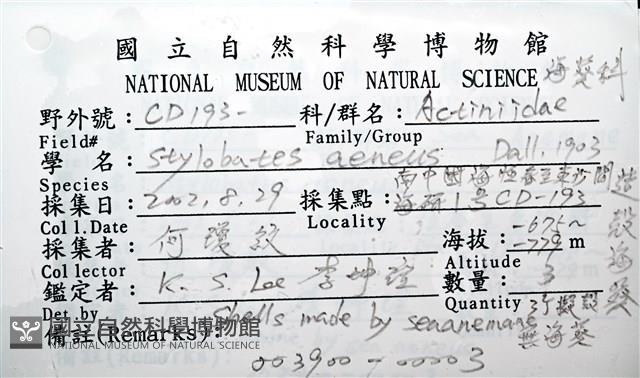 國立自然科學博物館
NATIONAL MUSEUM OF NATURAL SCIENCE 海葵科
野外號：CD193- 科/群名：Actiniidae
Field# Family/Group
學 名：Stylobates aeneus Dall. 1903
Species
採集日：2002.8.29 採集點：南中國海 海研1号CD-193
Coll.Date Locality
採集者：何瓊紋 海拔：-675~-779 m
Collector Altitude
鑑定者：K. S. Lee 李坤瑄 數量：3
Det.by Quantity
備註(Remarks)：Shells made by seaanemane
003900-00003
造殼海葵
國立自然科學博物館
NATIONAL MUSEUM OF NATURAL SCIENCE